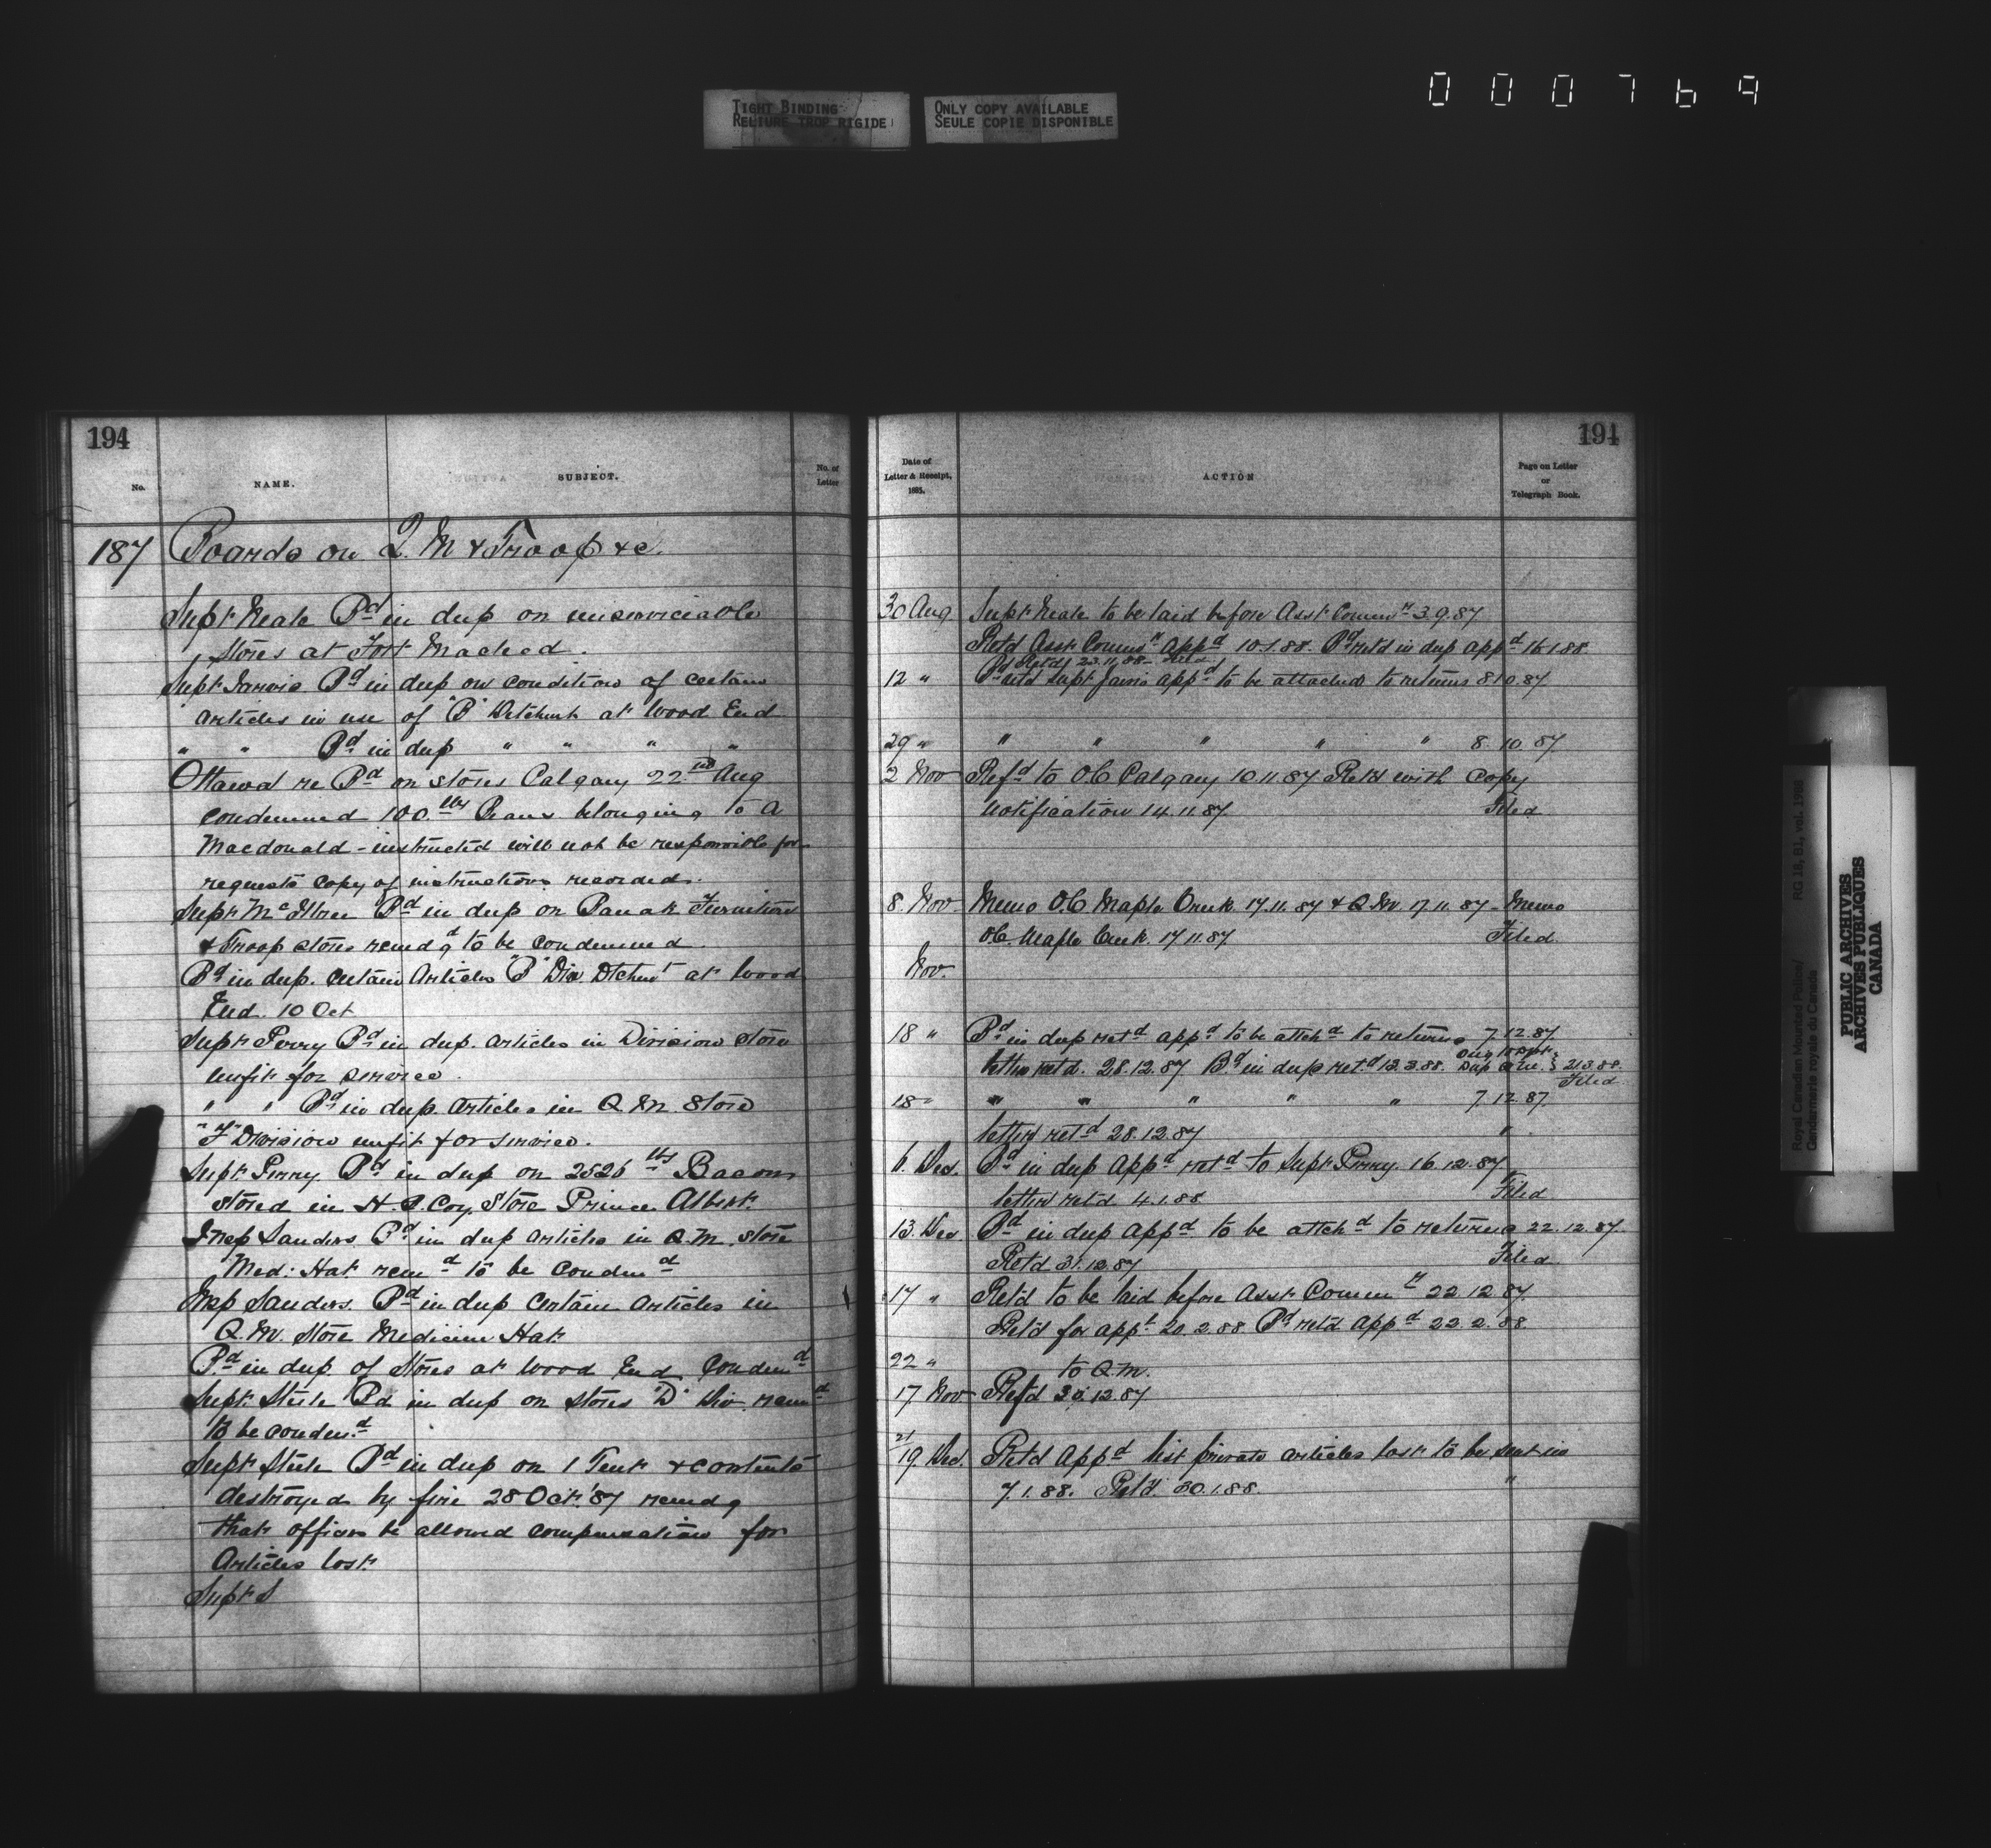 000769
TIGHT BINDING
RELIURE TROP RIGIDE
ONLY COPY AVAILABLE
SEULE COPIE DISPONIBLE
194
No.
NAME.
SUBJECT.
No. of
Letter
187 Boards on Q. M & Troop &c.
Supt Neale Bd in dup on unserviceable
Stores at Fort Macleod.
Supt Jarvis Bd in dup on condition of certain
articles in use of "B" Detchmt at Wood End
" " Bd in dup " " " "
Ottawa re Bd on stores Calgary 22nd Aug
condemned 100 lbs Beans belonging to A
Macdonald - instructed will not be responsible for
requests copy of instructions recorded.
Supt McIllree Bd in dup on Barrak Furniture
& Troop stores recmdg to be condemned.
Bd in dup. certain Articles "B" Div. Dtchmt at Wood
End. 10 Oct
Supt Perry Bd in dup. articles in Division Store
unfit for service.
" " Bd in dup. articles in Q. M Store
"F" Division unfit for service.
Supt Perry Bd in dup on 2526 lbs Bacon
stored in H. B. Coy. Store Prince Albert.
Insp Sanders Bd in dup articles in Q. M. Store
Med: Hat recmd to be condemd
Insp Sanders. Bd in dup certain Articles in
Q. M. Store Medicine Hat
Bd in dup of Stores at Wood End Condemd
Supt. Steele Bd in dup on stores "D" Div. recmd
to be condemd
Supt Steele Bd in dup on 1 Tent & contents
destroyed by fire 28 Oct. '87 recmdg
that officers be allowed compensation for
Articles lost.
Supt S
194
Date of
Letter & Receipt,
1885.
ACTION
Page on Letter
or
Telegraph Book.
30 Aug Supt Neale to be laid before Asst Commr 3.9.87
Retd Asst Commr Appd 10.1.88. Bd retd in dup appd 16.1.88.
Bd Retd 23.11.88
12 " Bd retd Supt Jarvis appd to be attached to returns 8.10.87.
29 " " " " " " 8.10.87
2 Nov Refd to O.C Calgary 10.11.87 Retd with Copy
Notification 14.11.87. Filed
8. Nov. Memo O.C Maple Creek 17.11.87 & Q.M. 17.11.87 - Memo
O.C. Maple Creek. 17.11.87 Filed
Nov.
18 " Bd in dup retd appd to be attchd to returns 7.12.87.
letter retd. 28.12.87 Bd in dup ret.d 13.3.88. 21.3.88.
Filed
18 " " " " " " 7.12.87.
letter retd 28.12.87 "
6. Dec. Bd in dup Appd retd to Supt Perry. 16.12.87
letter retd 4.1.88 Filed
13. Dec Bd in dup appd to be attchd to returns 22.12.87.
Retd 31.12.87 Filed
17 " Ret'd to be laid before Asst Commr 22.12.87.
Ret'd for appl 20.2.88 Bd retd appd 22.2.88
22 " to Q.M.
17 Nov Refd 30.12.87
21
19. Dec. Retd Appd list private articles lost to be sent in
7.1.88. Ret'd. 30.1.88. "
Royal Canadian Mounted Police/
Gendarmerie royale du Canada
RG 18, B1, vol. 1788
PUBLIC ARCHIVES
ARCHIVES PUBLIQUES
CANADA